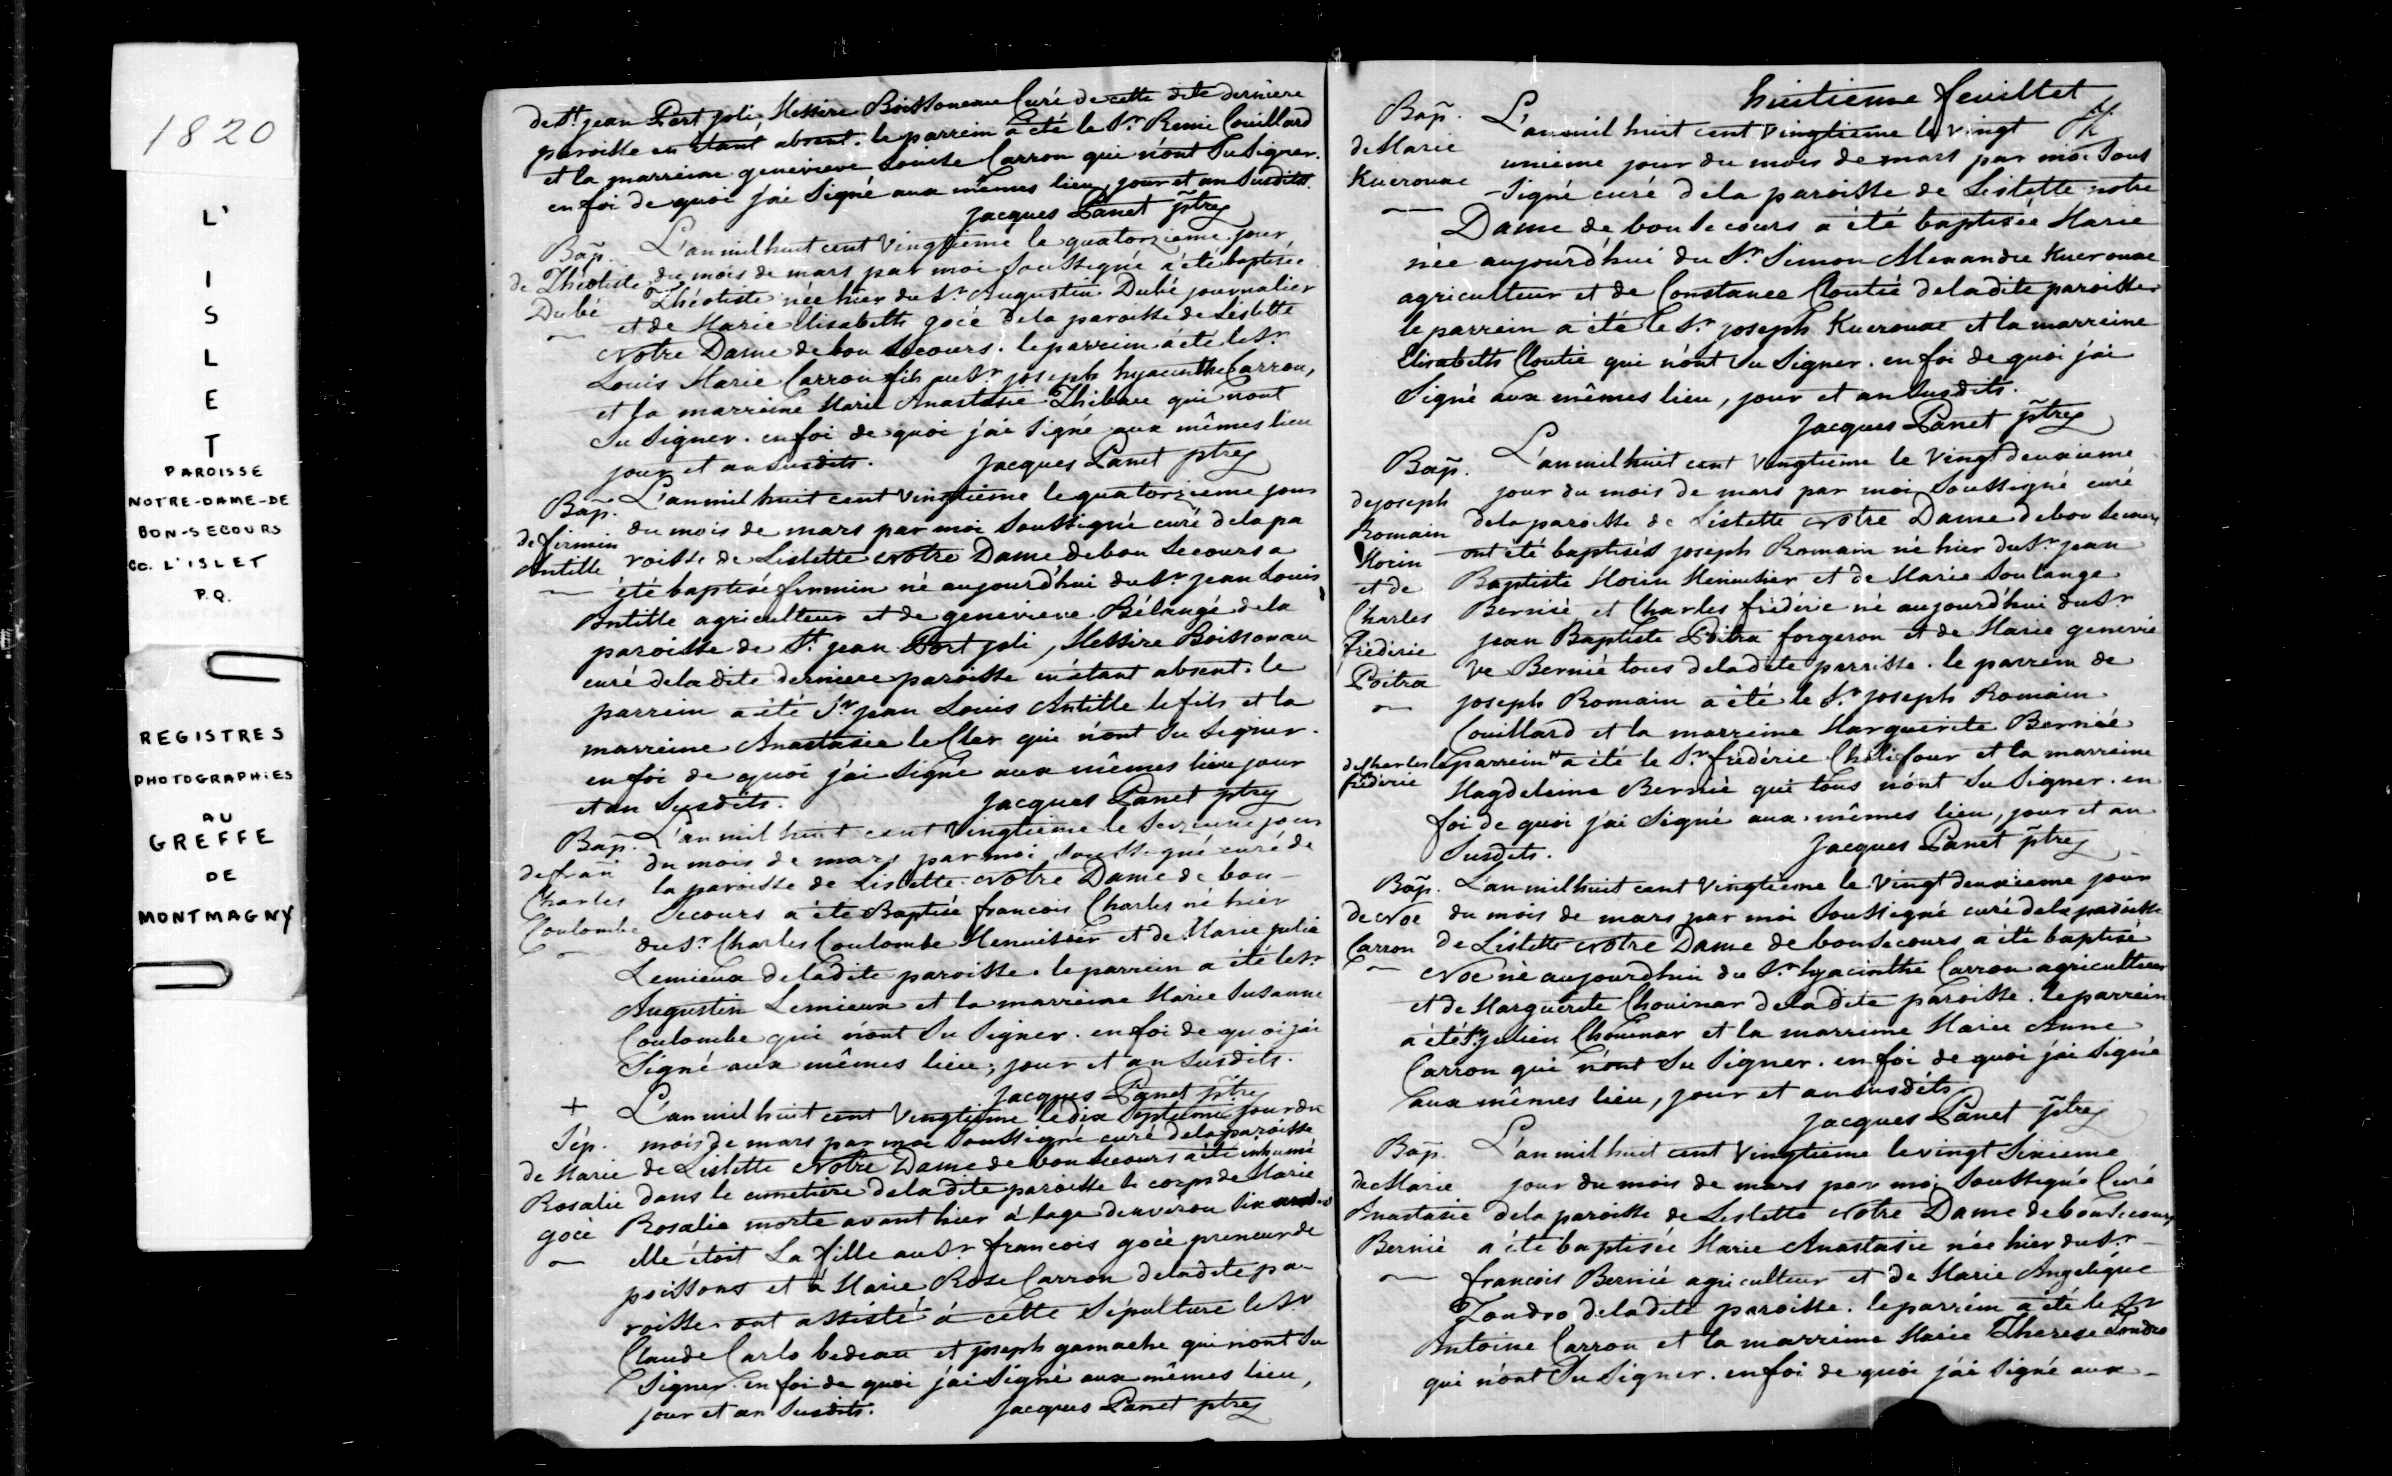 1820
L'
I
S
L
E
T
PAROISSE
NOTRE-DAME-DE
BON-SECOURS
CC. L'ISLET
P.Q.
REGISTRES
PHOTOGRAPHiES
AU
GREFFE
DE
MONTMAGNY
de St. jean Port joli, Messire Boissonneau Curé de cette dite derniere
paroisse en étant absent. le parrein a été le Sr. Remi Couillard
et la marreine genevieve Louise Carron qui n'ont Su Signer.
en foi de quoi j'ai Signé aux mêmes lieu, jour et an Susdits.
jacques Panet ptre
Bap. L'an mil huit cent vingtieme le quatorzieme jour
de Théotiste du mois de mars par moi Soussigné a été baptisée
Dubé Théotiste née hier du Sr. Augustin Dubé journalier
et de Marie Elisabeth gocé de la paroisse de Lislette
Notre Dame de bon Secours. le parrein a été le Sr.
Louis Marie Carron fils au Sr. joseph hyacinthe Carron,
et la marreine Marie Anastasie Thibau qui n'ont
Su Signer. en foi de quoi j'ai Signé aux mêmes lieu
jour et an Susdits. jacques Panet ptre
Bap. L'an mil huit cent vingtieme le quatorzieme jour
de firmin du mois de mars par moi Soussigné curé de la pa
Antille roisse de Lislette Notre Dame de bon Secours a
été baptisé firmin né aujourd'hui du Sr. jean Louis
Antille agriculteur et de genevieve Bélangé de la
paroisse de St. jean Port joli, Messire Boissonau
curé de la dite derniere paroisse en étant absent. le
parrein a été Sr. jean Louis Antille le fils et la
marreine Anastasie le Cler qui n'ont Su Signer.
en foi de quoi j'ai Signé aux mêmes lieu jour
et an Susdits. jacques Panet ptre
Bap. L'an mil huit cent vingtieme le Seizieme jour
de fran du mois de mars par moi Soussigné curé de
Charles la paroisse de Lislette Notre Dame de bon
Coulombe Secours a été Baptisé francois Charles né hier
du Sr. Charles Coulombe Menuisier et de Marie julie
Lemieux de la dite paroisse. le parrein a été le Sr.
Augustin Lemieux et la marreine Marie Susanne
Coulombe qui n'ont Su Signer. en foi de quoi j'ai
Signé aux mêmes lieu, jour et an Susdits.
jacques Panet ptre
+ L'an mil huit cent vingtieme le dix Septieme jour du
Sép. mois de mars par moi Soussigné curé de la paroisse
de Marie de Lislette Notre Dame de bon Secours a été inhumé
Rosalie dans le cimetiere de la dite paroisse le corps de Marie
gocé Rosalie morte avant hier a l'age d'environ Six
elle étoit La fille au Sr. francois gocé preneur de
poissons et a Marie Rose Carron de la dite pa
roisse. ont assisté a cette Sépulture le Sr.
Claude Carlo bedeau et joseph gamache qui n'ont Su
Signer. en foi de quoi j'ai Signé aux mêmes lieu,
jour et an Susdits. jacques Panet ptre
huitieme feuillet
Bap. L'an mil huit cent vingtieme le vingt
de Marie unieme jour du mois de mars par moi Sous
Kuerouac -Signé curé de la paroisse de Lislette notre
Dame de bon Secours a été baptisée Marie
née aujourd'hui du Sr. Simon Alexandre Kuerouac
agriculteur et de Constance Cloutié de la dite paroisse
le parrein a été le Sr. joseph Kuerouac et la marreine
Elisabeth Cloutié qui n'ont Su Signer. en foi de quoi j'ai
Signé aux mêmes lieu, jour et an Susdits.
jacques Panet ptre
Bap. L'an mil huit cent vingtieme le vingt deuxieme
de joseph jour du mois de mars par moi Soussigné curé
Romain de la paroisse de Lislette Notre Dame de bon Secours
Morin ont été baptisés joseph Romain né hier du Sr. jean
et de Baptiste Morin Menuisier et de Marie Soulange
Charles Bernié et Charles frédéric né aujourd'hui du Sr
frédéric jean Baptiste Poitra forgeron et de Marie genevie
Poitra ve Bernié tous de la dite parroisse. le parrein de
joseph Romain a été le Sr. joseph Romain
Couillard et la marreine Marguerite Bernié
de Charles frédéric le parrein a été le Sr. frédéric Chalifour et la marreine
Magdeleine Bernié qui tous n'ont Su Signer. en
foi de quoi j'ai Signé aux mêmes lieu, jour et an
Susdits. jacques Panet ptre
Bap. L'an mil huit cent vingtieme le vingt deuxieme jour
de Noé du mois de mars par moi Soussigné curé de la paroisse
Carron de Lislette Notre Dame de bon Secours a été baptisé
Noé né aujourd'hui du Sr. hyacinthe Carron agriculteur
et de Marguerite Chouinar de la dite paroisse. le parrein
a été Sr. julien Chouinar et la marreine Marie Anne
Carron qui n'ont Su Signer. en foi de quoi j'ai Signé
aux mêmes lieu, jour et an Susdits
jacques Panet ptre
Bap. L'an mil huit cent vingtieme le vingt Sixieme
de Marie jour du mois de mars par moi Soussigné Curé
Anastasie de la paroisse de Lislette Notre Dame de bon Secours
Bernié a été baptisée Marie Anastasie née hier du Sr.
francois Bernié agriculteur et de Marie Angelique
Tondro de la dite paroisse. le parrein a été le Sr
Antoine Carron et la marreine Marie Therese Tondro
qui n'ont Su Signer. en foi de quoi j'ai Signé aux